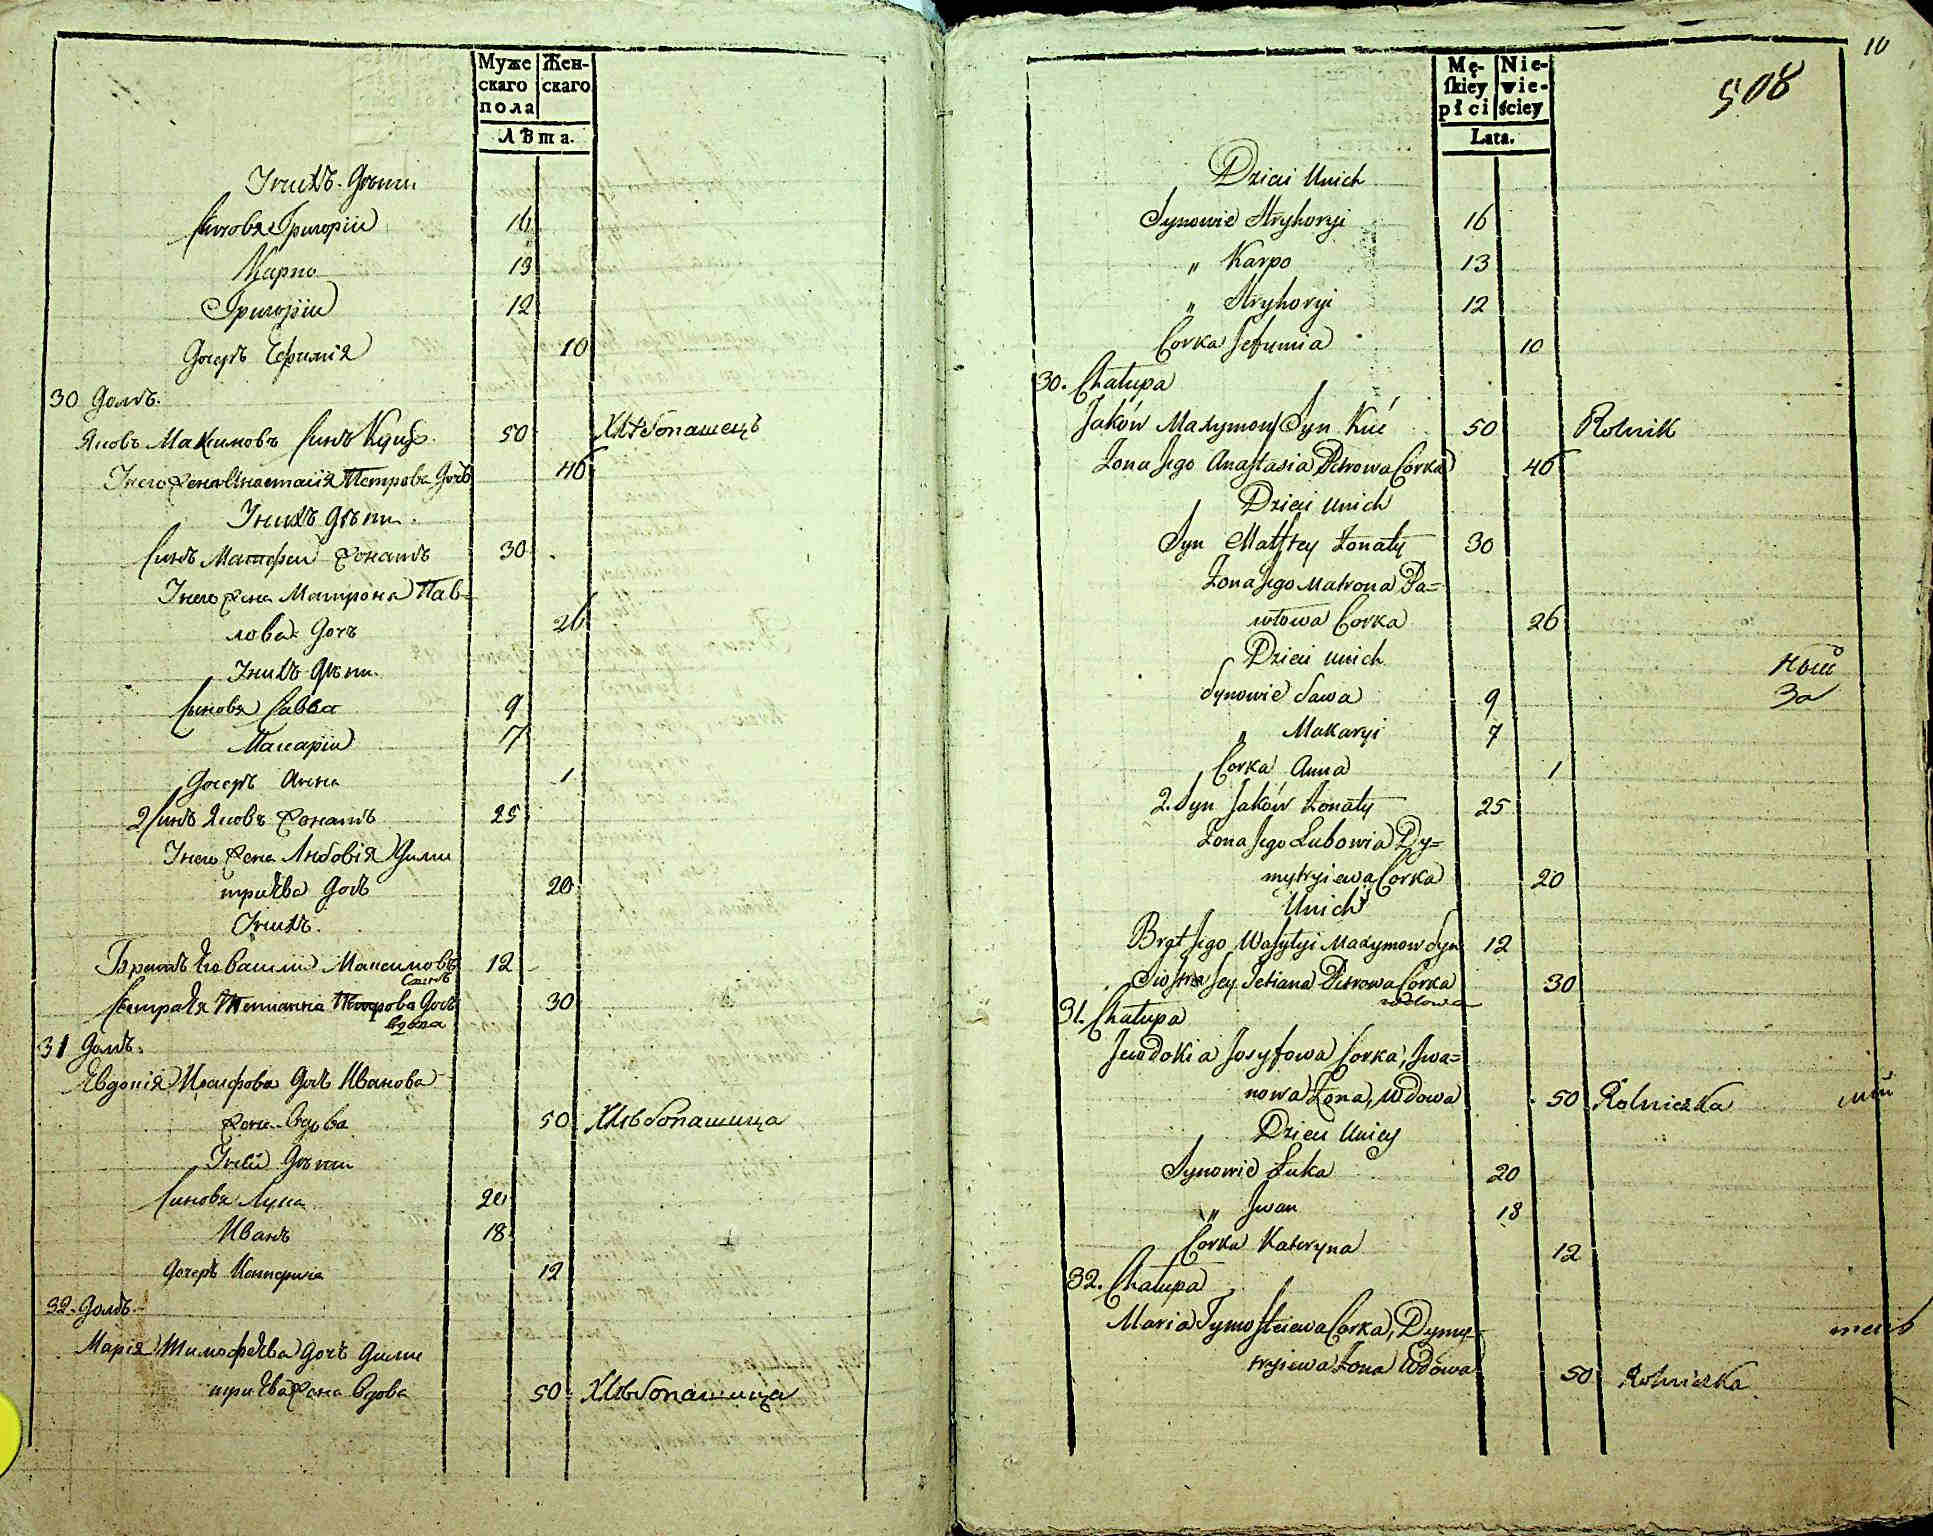 Муже Жен-
скаго скаго
пола
Лѣта.
Унихъ Дѣти
Синовя Григорій 16
Карпо 13
Григорій 12
Дочерь Ефимія 10
30 Домъ.
Яковъ Макимовъ Синъ Куцъ 50 Хлѣбопашецъ
Унего Жена Анастасія Петрова Дочь 46
Унихъ Дѣти.
Синъ Матфей Жонатъ 30
Унего Жена Матрона Пав-
лова Дочь 26
Унихъ Дѣти.
Сыновя Савва 9
Макарій 7
Дочерь Анна 1
2 Синъ Яковъ Жонатъ 25
Унего Жена Любовія Дими
триева Дочь 20
Унихъ.
Братъ Его Василій Максимовъ 12
Синъ
Сестра Ея Тетианна Петрова Дочь 30
вдова
31 Домъ.
Евдокія Иосифова Дочь Иванова
Жена Вдова 50 Хлѣбопашица
Уней Дѣти
Синовя Лука 20
Иванъ 18
Дочерь Катерина 12
32. Домъ.
Марія Тимофеева Дочь Дими
триева Жена Вдова 50 Хлѣбопашица
10
508
Mę- Nie-
skiey wie-
płci ściey
Lata.
Dzieci Unich
Synowie Hryhoryi 16
" Karpo 13
" Hryhoryi 12
Corka Jefumia 10
30. Chałupa
Jaków Maxymow Syn Kuć 50 Rolnik
Żona Jego Anastasia Petrowa Corka 46
Dzieci Unich
Syn Matfiey Żonaty 30
Żona Jego Matrona Pa=
włowa Corka 26
Dzieci Unich
Synowie Sawa 9
" Makaryi 7
Corka Anna 1
2. Syn Jaków Żonaty 25
Żona Jego Lubowia Dy=
mytryiewa Corka 20
Unich
Brat Jego Wasylyi Maxymow Syn 12
Siostra Jey Tetiana Petrowa Corka 30
wdowa
31. Chałupa
Jewdokia Josyfowa Corka, Jwa=
nowa Żona, Wdowa 50 Rolniczka
Dzieci Uniey
Synowie Łuka 20
" Jwan 18
Corka Kateryna 12
32. Chałupa
Maria Tymofteiewa Corka, Dymy-
tryiewa Żona Wdowa 50 Rolniczka.
ный
За